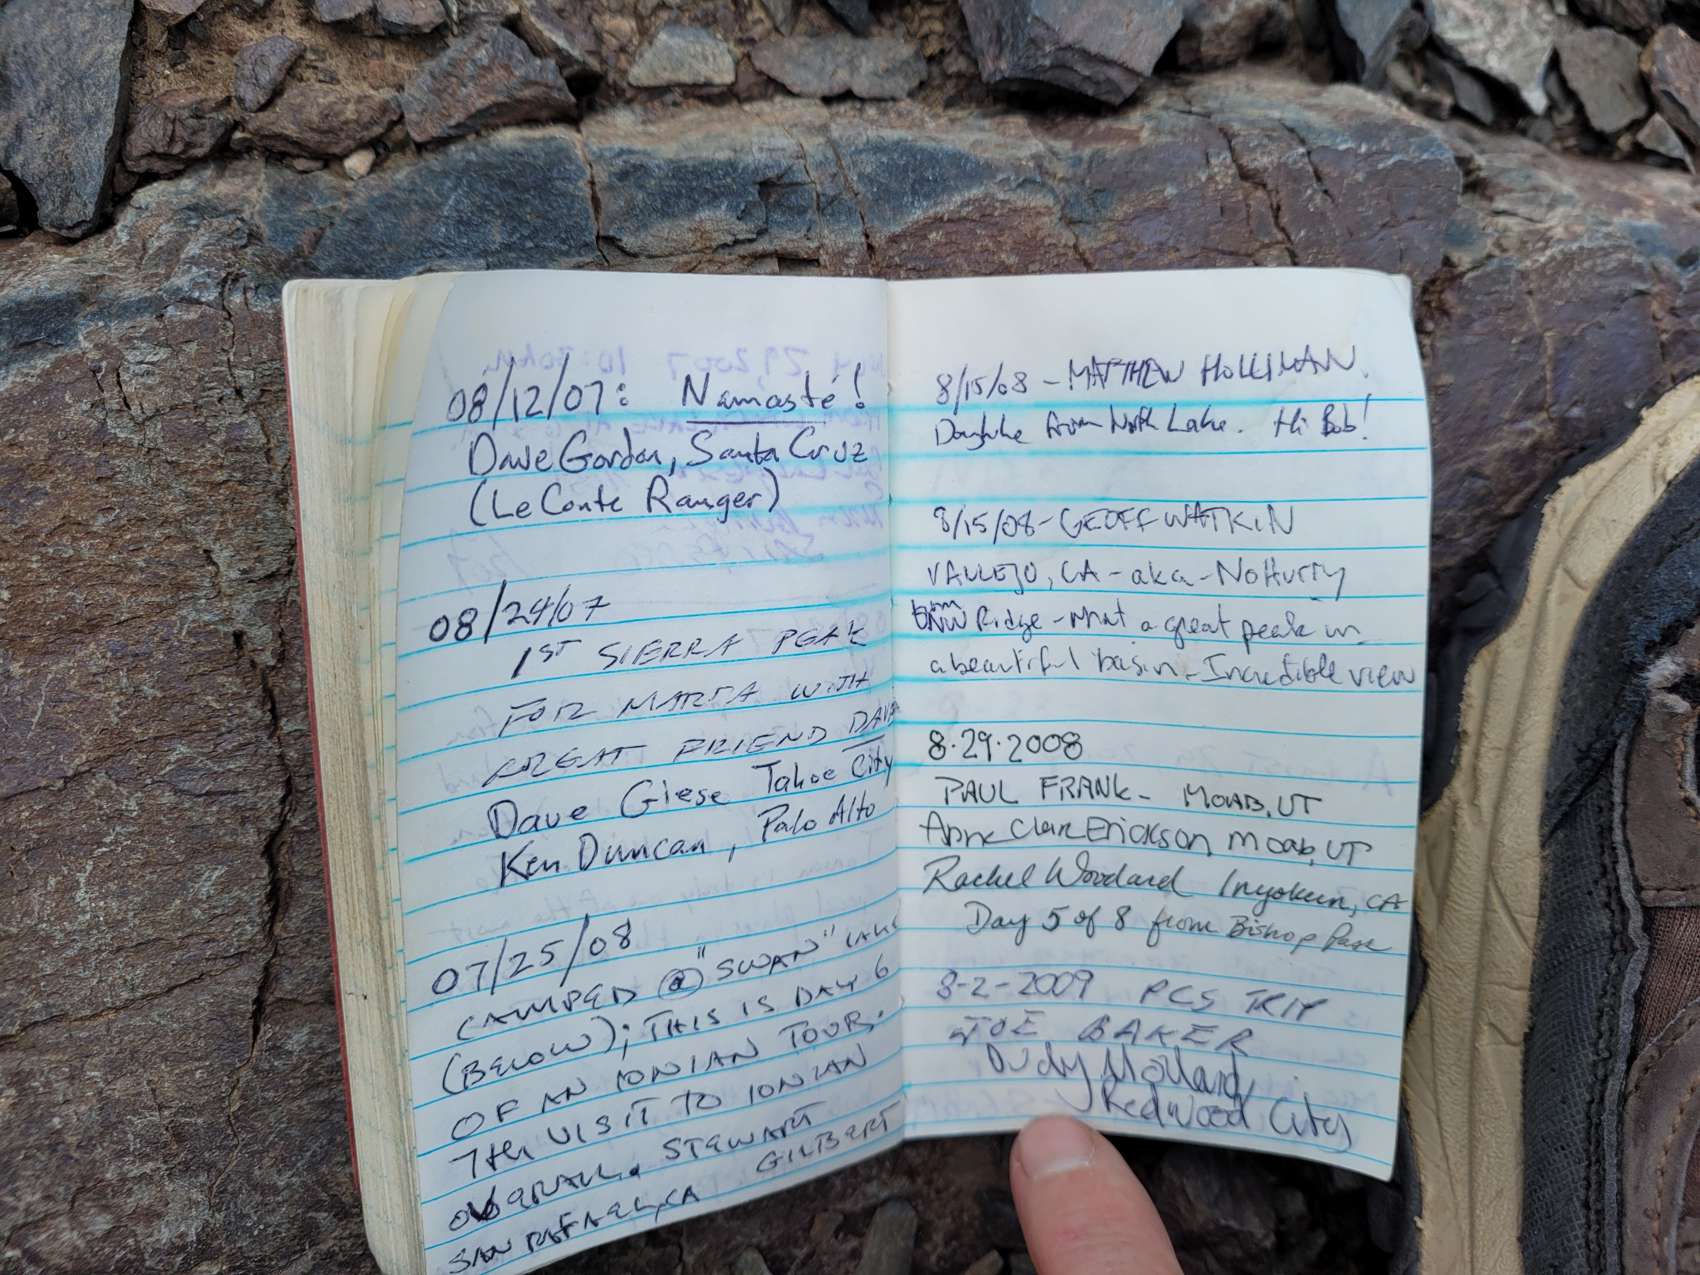 08/12/07: Namasté!
Dave Gordon, Santa Cruz
(LeConte Ranger)
08/24/07
1ST SIERRA PEAK
FOR MARTA WITH
GREAT FRIEND DAVE
Dave Giese Tahoe City
Ken Duncan, Palo Alto
07/25/08
CAMPED @ "SWAN" LAKE
(BELOW); THIS IS DAY 6
OF AN IONIAN TOUR.
7th VISIT TO IONIAN
OVERALL. STEWART
GILBERT
SAN RAFAEL, CA
8/15/08 - MATTHEW HOLLIMAN.
Dayhike from North Lake. Hi Bob!
8/15/08 - GEOFF WATKIN
VALLEJO, CA - aka - NoHurry
Ridge - What a great peak in
a beautiful basin - Incredible view
8.29.2008
PAUL FRANK - MOAB, UT
Anne Clare Erickson, Moab, UT
Rachel Woodard Inyokern, CA
Day 5 of 8 from Bishop Pass
8-2-2009 PCS TRIP
JOE BAKER
Judy Molland,
Redwood City